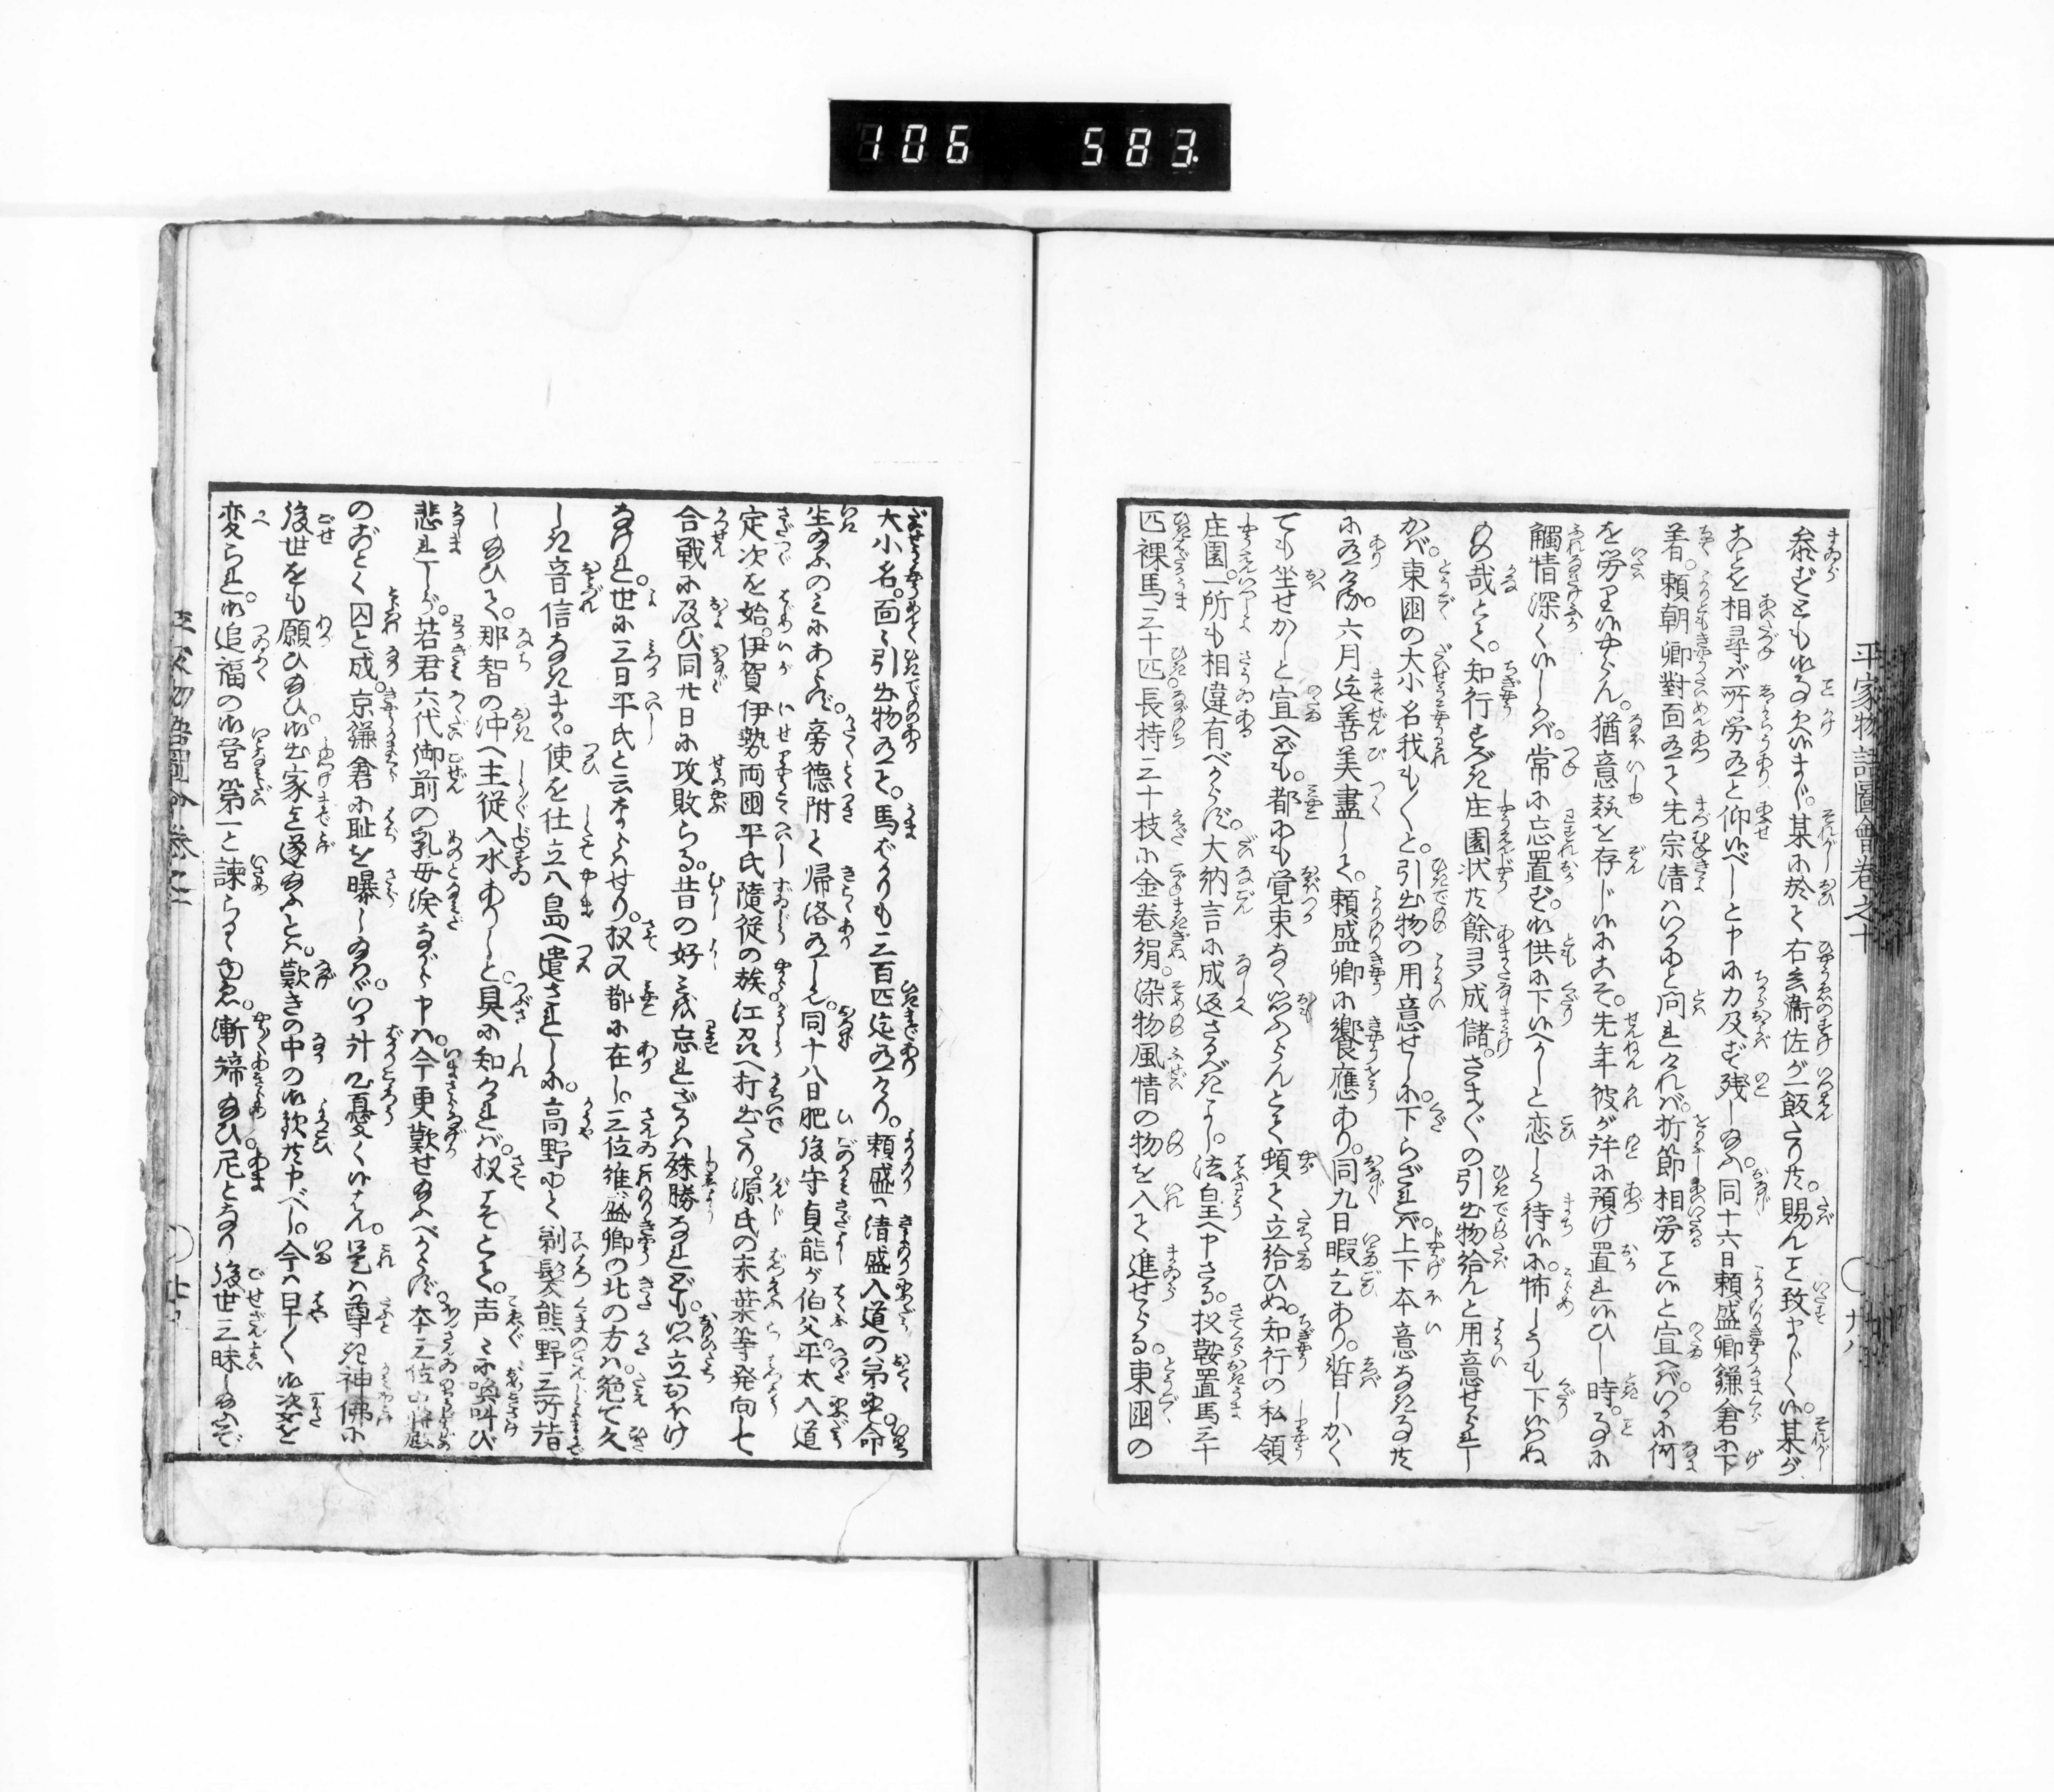 106 583
平家物語圖會卷之十
参ずとも御事欠いまじ。某に於て右兵衞佐が一飯たりた。賜んと致すまじくい。某が
ことを相尋ば所労有と仰いべしと申に力及ず残し給ふ。同十六日頼盛卿鎌倉に下
着。頼朝卿對面有て先宗清はいかにと問れければ。折節相労といと宣へば。いかに何
を労りい申らん。猶意趣を存じいにこそ。先年彼が許に預け置れいひし時。事に
觸情深くいしかば。常に忘置ず。御供に下いへかしと恋しう待いに。怖しうも下いはぬ
もの哉とて。知行すべき庄園状共餘多成儲。さまざまの引出物給んと用意せられし
かば。東国の大小名我も〳〵と。引出物の用意せしに。下らざれば。上下本意なき事共
に有ける。六月迄善美盡して。頼盛卿に饗應あり。同九日暇乞あり。暫しかく
ても坐せかしと宣へども。都にも覚束なく思ふらんとて頓て立給ひぬ。知行の私領
庄園。一所も相違有べからず。大納言に成返さるべきよし。法皇へ申さる。扨鞍置馬三十
匹裸馬三十匹長持三十枝に金卷絹。染物風情の物を入て進せらる。東国の
大小名。面〻引出物有て。馬ばかりも三百匹迄有けり。頼盛は清盛入道の弟。命
生給ふのみにあらず。旁德附て帰洛有しと。同十八日肥後守貞能が伯父。平太入道
定次を始。伊賀伊勢両国平氏隨從の族。江刕へ打出たり。源氏の末葉等発向七
合戦に及び同廿日に攻敗らる。昔の好みを忘れざるは殊勝なれども。思立おほけ
なけれ。世に三日平氏と云ならはせり。扨又都に在し。三位維盛卿の北の方は。絶て久
しき音信なきまゝ。使を仕立八島へ遣されしに。高野にて剃髪熊野三所詣
し給ひて。那智の沖へ主従入水ありしと。具に知ければ。扨こそとて。声〻に喚叫び
悲れしが。若君六代御前の乳母涙ながら申は。今更歎せ給ふべからず。本三位中将殿
のごとく囚と成。京鎌倉に耻を曝し給はゞ。いか計心憂くいはん。是は尊き神佛に
後世をも願ひ給ひ。御出家を遂給ふとは。歎きの中の御歓共申べし。今は早く御姿を
変られ。御追福の御営第一と諫らるゝゆゑ。漸諦給ひ尼となり後世三昧し給ふぞ